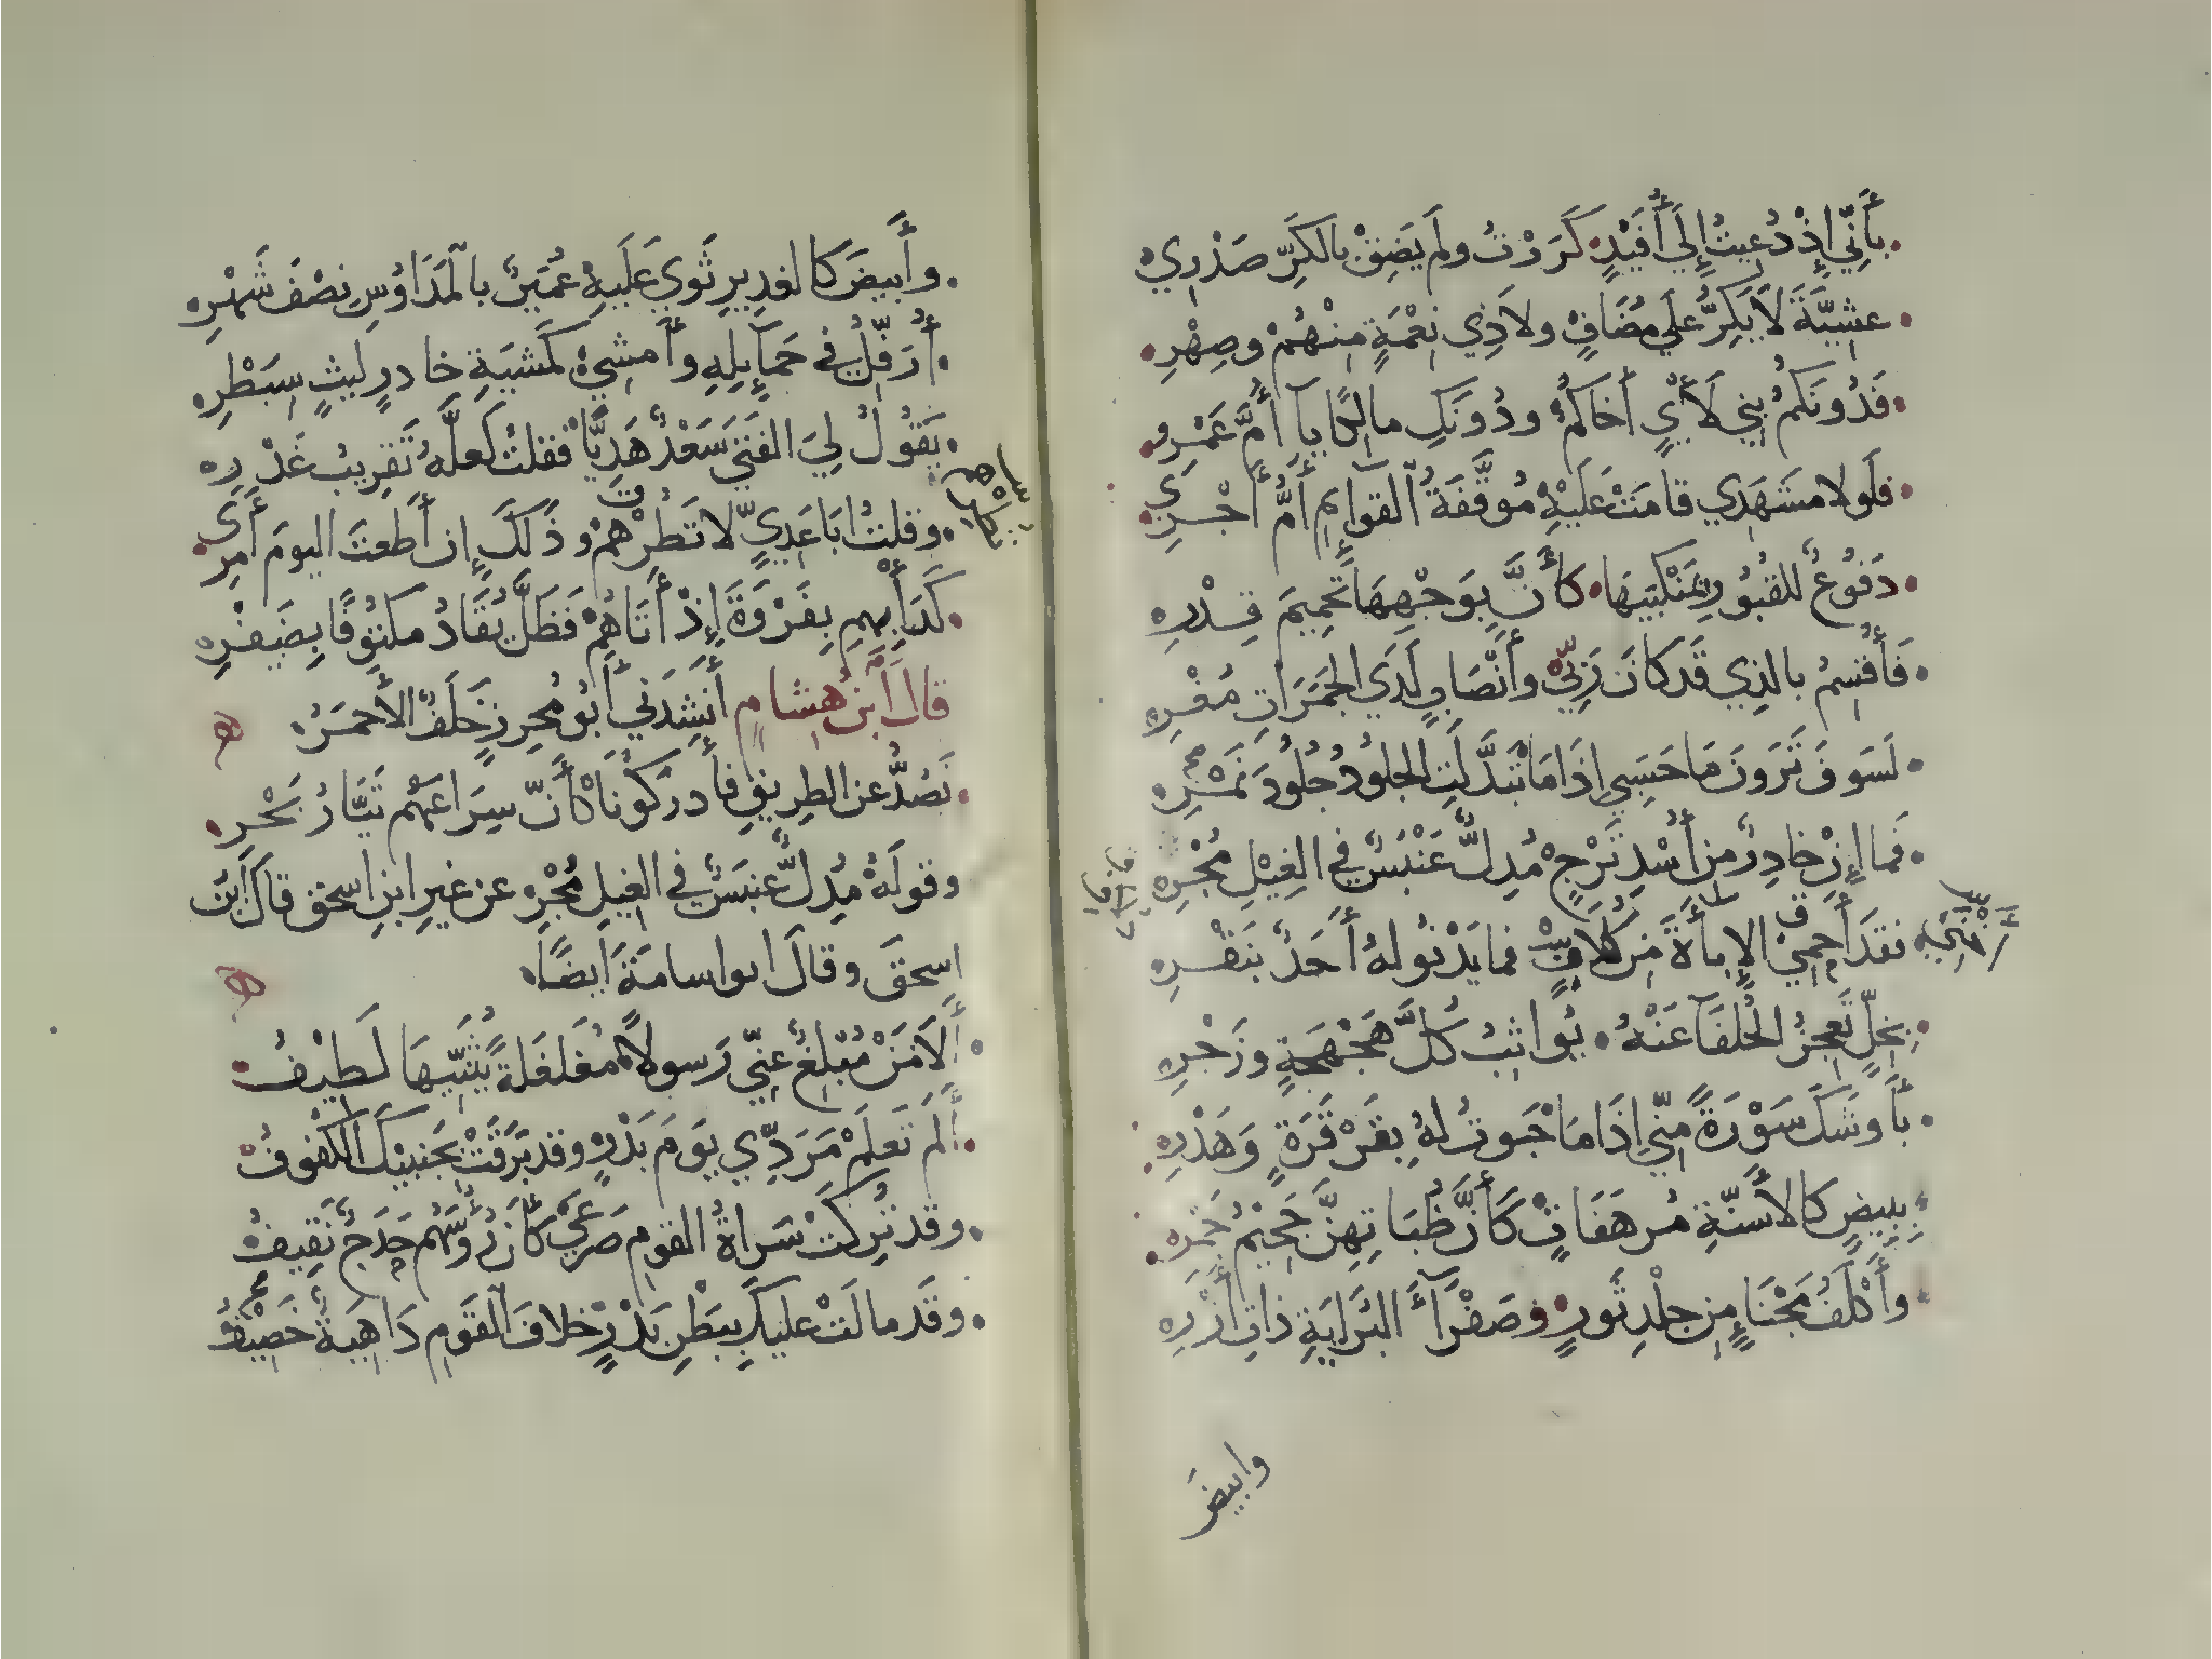 بأَنِّي إِذْ دُعِيتُ إِلَى أُفَيْدٍ كَرَرْتُ ولَم يَضِقْ بالكَرِّ صَدْرِي
عشِيَّةَ لَا يَكِرُّ علَى مُضَافٍ ولا ذِي نِعْمَةٍ مِنْهُمْ وصِهْرِ
فَدُونَكُمُ بني لَأْيٍ أَخاكُمْ ودُونَكِ مالِكًا يآ أُمَّ عَمْرِو
فلَولا مشَهَدِي قامَتْ عَلَيْهِ مُوَقَّفَةُ القوآئِمِ أُمُّ أَجْرِي
دَفُوعٌ للقُبُورِ بمَنْكِبَيهَا كأَنَّ بِوَجْهِهَا تَحْمِيمَ قِدْرِ
فَأُقْسِمُ بالذِي قَد كانَ رَبِّي وأَنْصَابٍ لَدَى الجَمَرَاتِ مُغْرِ
لَسَوفَ تَرَونَ مَا حَسَبِي إِذَا مَا تَبَدَّلَتِ الجلُودُ جُلُودَ نَمْرِ
فَما إِنْ خادِرٌ مِن أُسْدِ تَرْجٍ مُدِلٌّ عَنْبَسٌ في الغِيْلِ مُجْرِ
فقَد أَحمَى الإِباءَةَ مِن كُلَافٍ فما يَدْنُو لهُ أَحَدٌ بنَقْرِ
بِخَلٍّ تَعجِزُ الحُلَفَآ عَنْهُ يُواثِبُ كُلَّ هَجْهَجَةٍ وزَجْرِ
بأَوشَكَ سَوْرَةً مِنِّي إِذَا مَا حَبَوتُ لهُ بِقَرْقَرَةٍ وَهَدْرِ
بِبِيضٍ كالأَسنّةِ مُرهَفَاتٍ كَأَنَّ ظُبَاتِهِنَّ جَحِيْمُ جَمْرِ
وأَكْلَفُ مَجْنَاءٍ مِن جلْدِ ثَورٍ وصَفْرَآءَ البُرَايَةِ ذاتِ أَزْرِ
وابيضَ
وأَبيضَ كالغدِيرِ ثَوَى عَلَيهِ عُمَيْرٌ بالْمَدَاوِسِ نِصْفَ شَهْرِ
أُرَفِّلُ في حَمَآئِلِهِ وأَمشِي كَمشيَةِ خادرٍ لَيثٍ سِبَطْرِ
يَقُولُ لِيَ الفتَى سَعْدٌ هَدِيًّا فقلتُ لَعلَّهُ تَقرِيبُ غَدْرِ
وقلتُ أبَا عَدِيٍّ لا تَطُرْهُمْ وذَلكَ إِن أَطعتَ اليومَ أَمرِي
كَدَأْبِهِمِ بِفَرْوَةَ إِذْ أَتَاهُمْ فَظَلَّ يُقَادُ مَكتُوفًا بِضَفْرِ
قال ابنُ هِشامٍ أَنشَدَني أَبُو مُحرِزٍ خَلَفٌ الأَحمَرُ
نَصُدُّ عن الطرِيقِ فأَدركُونَا كأَنّ سِرَاعَهُم تَيَّارُ بَحْرِ
وقولُهُ مُدِلٌّ عنبَسٌ في الغِيلِ مُجْرِ عن غيرِ ابنِ إسحق قالَ ابنُ
إسحقَ وقالَ ابو اسامَةَ أيضًا
أَلَا مَنْ مُبْلِغٌ عنِّي رَسولًا مُغَلغَلةً يُثَبِّيها لَطِيْفُ
أَلَم تَعلَمْ مَرَدِّي يوَمَ بَدْرٍ وقد بَرَقَتْ بجَنبَيْكَ الكُفُوفُ
وقد تُرِكَتْ سَراةُ القومِ صَرعَى كأَنَّ رُءُوسَهُم حَدَجٌ نَقِيفُ
وقَد مالَتْ عليكَ بِبَطْنِ بَدْرٍ خلافَ القَومِ دَاهِيَةٌ خَصِيْفُ